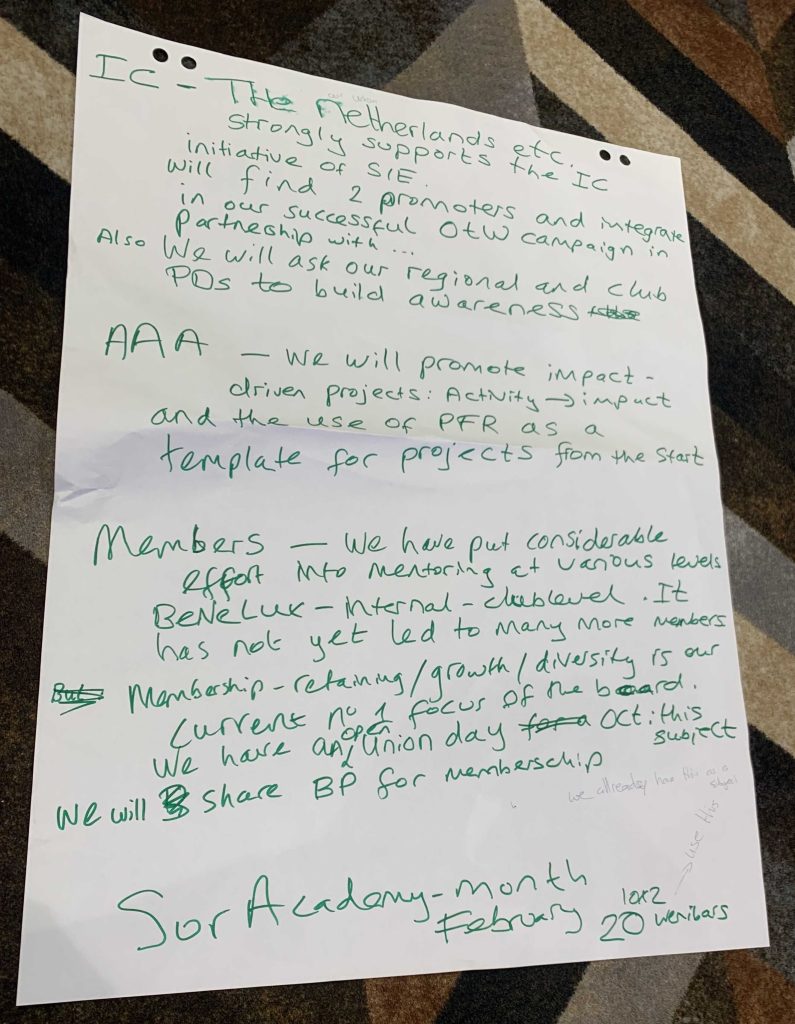 IC - The Netherlands etc.
our union
strongly supports the IC
initiative of SIE.
will find 2 promoters and integrate
in our successful OtW campaign in
partneship with ...
Also We will ask our regional and club
PDs to build awareness
AAA - We will promote impact-
driven projects: Activity → impact
and the use of PFR as a
template for projects from the start
Members - We have put considerable
effort into mentoring at various levels
BeNeLux - internal - clublevel. It
has not yet led to many more members
But Membership - retaining/growth/diversity is our
current no 1 focus of the board.
We have an open Union day for a Oct: this
subject
We will share BP for memberschip
we allready have this as a
subject
→ use this
Sor Academy - month
February 20 wenibars
10x2